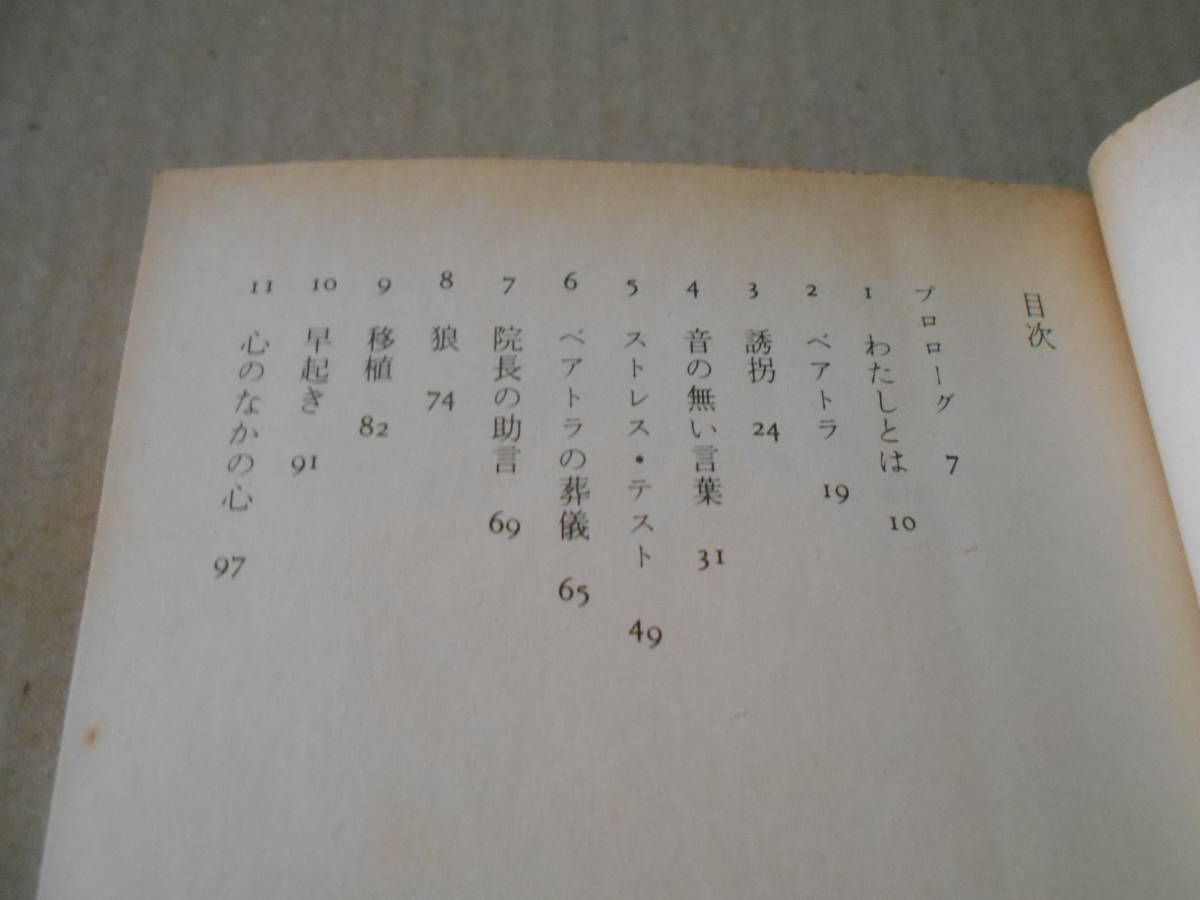 目次
プロローグ 7
1 わたしとは 10
2 ベアトラ 19
3 誘拐 24
4 音の無い言葉 31
5 ストレス・テスト 49
6 ベアトラの葬儀 65
7 院長の助言 69
8 狼 74
9 移植 82
10 早起き 91
11 心のなかの心 97